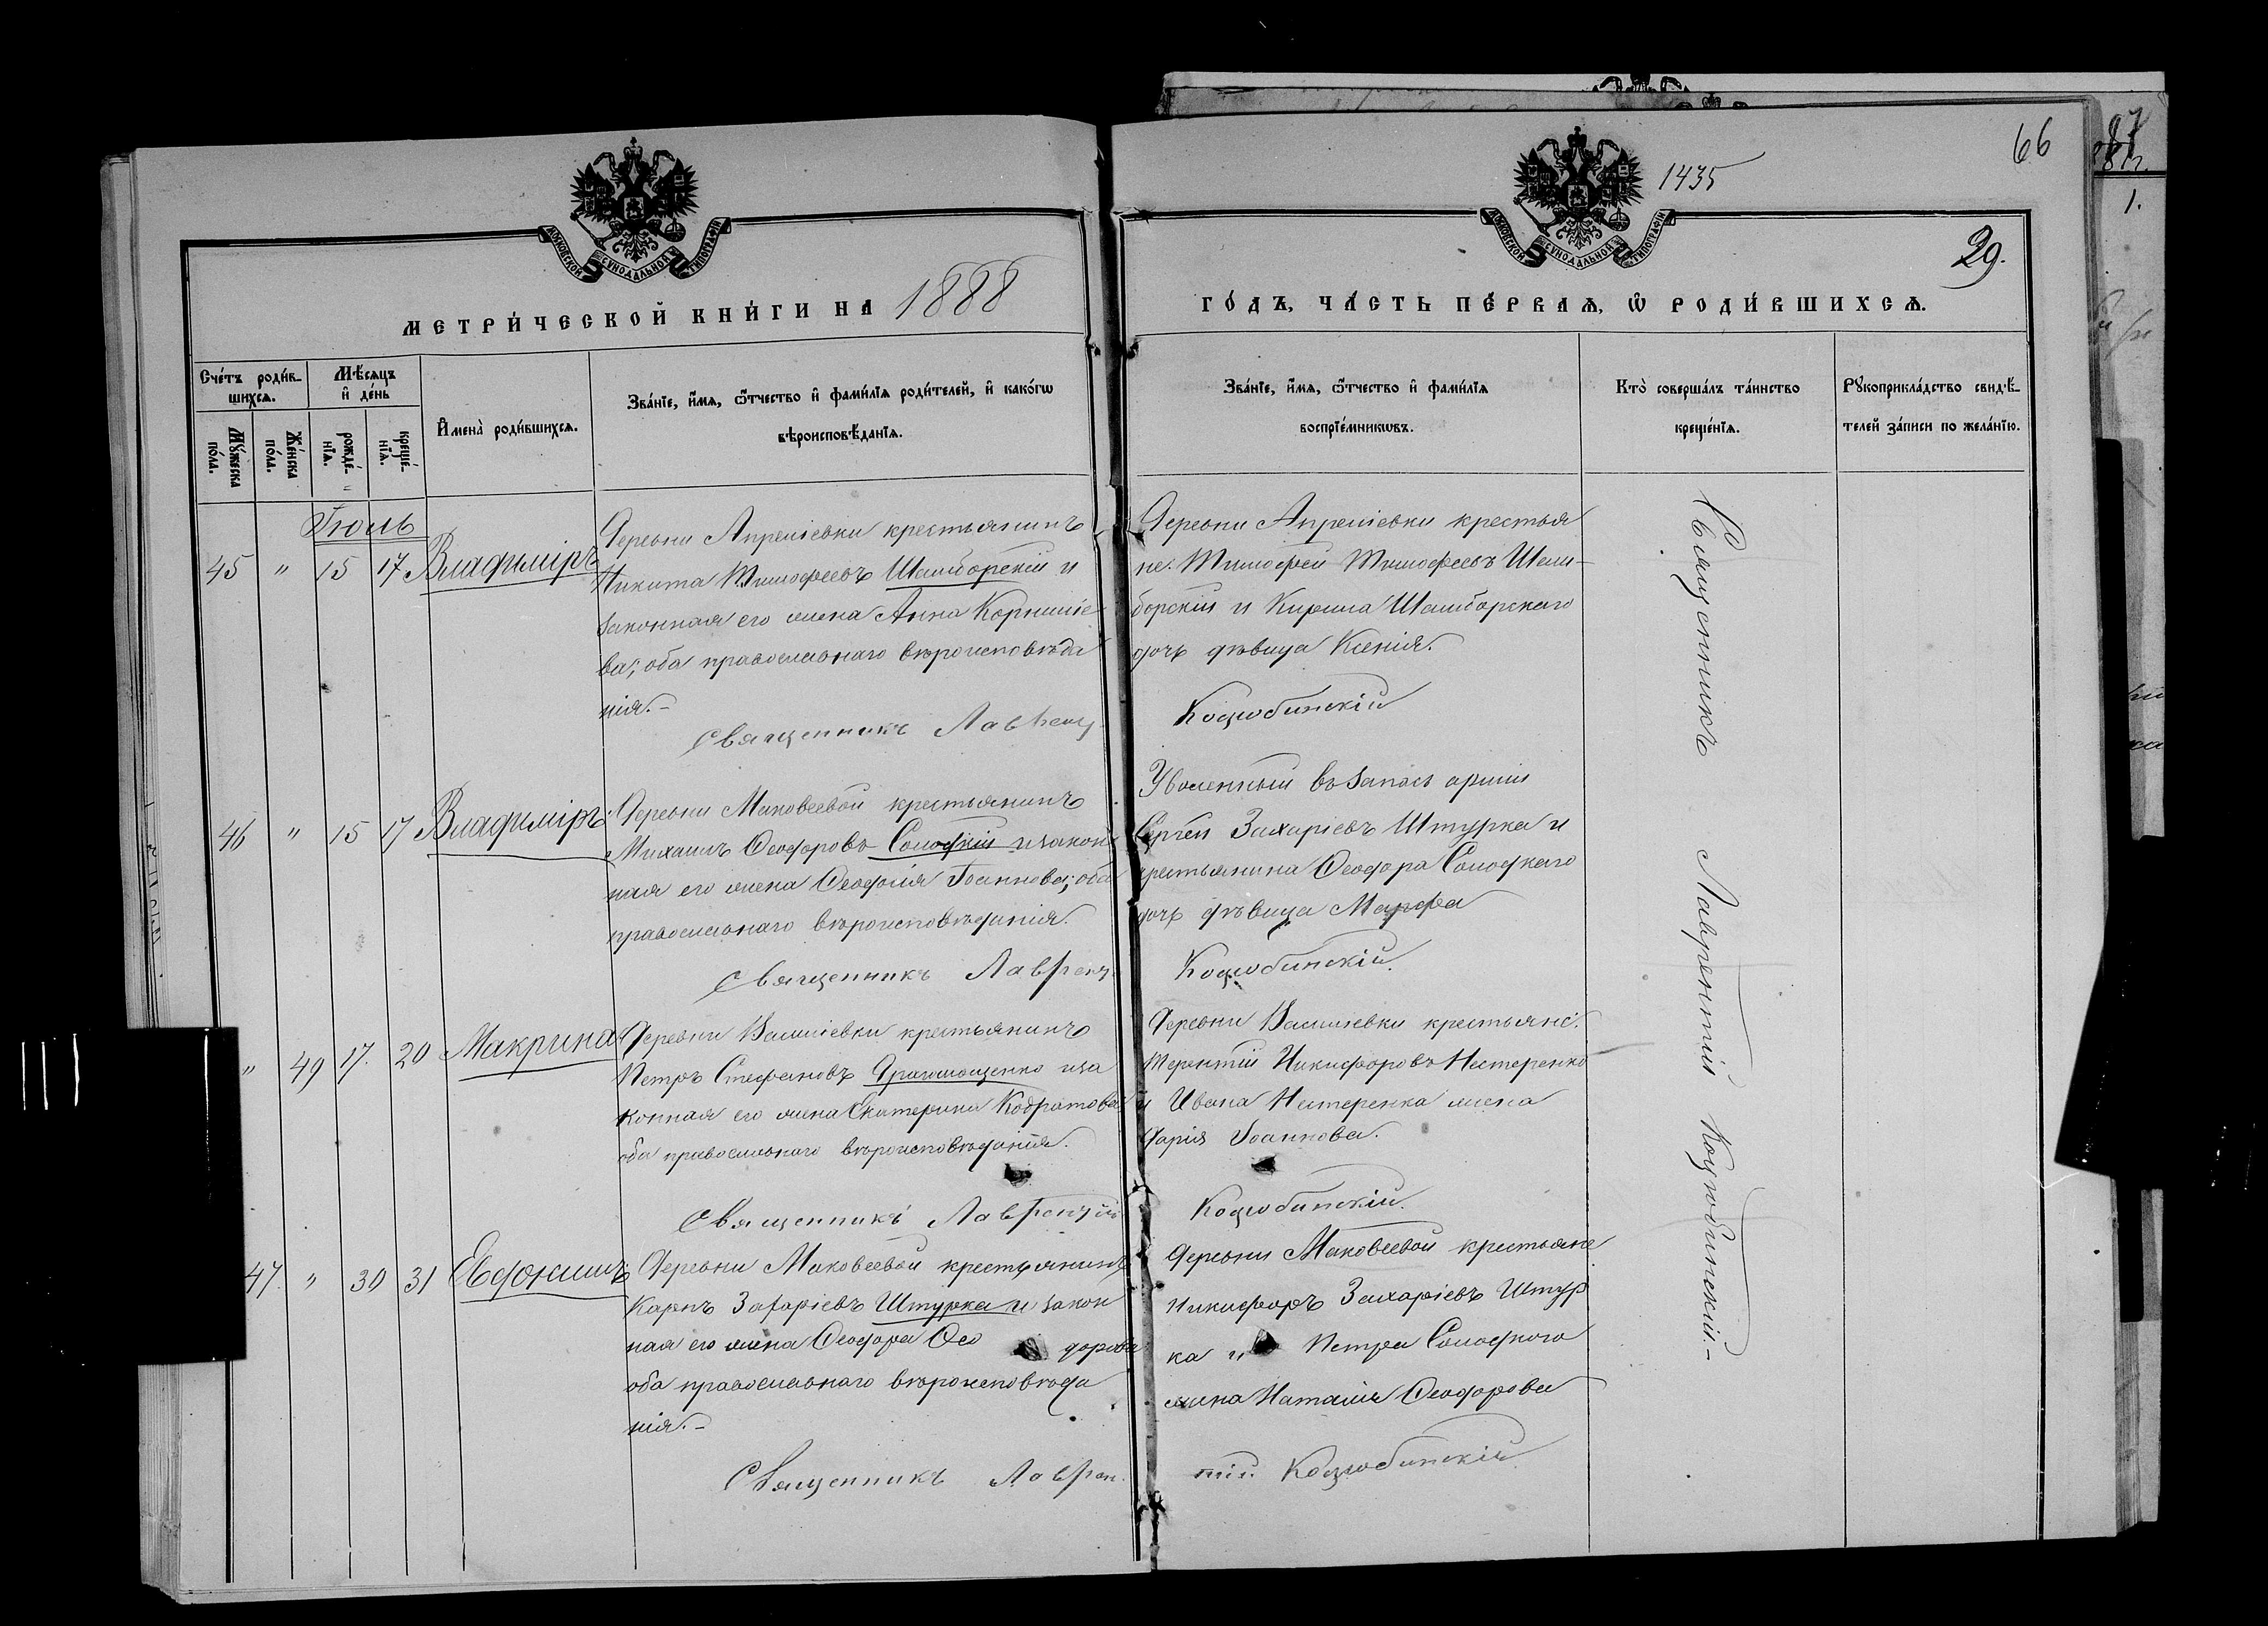 66
1435
29.
МОСКОВСКОЙ СУНОДАЛЬНОЙ ТИПОГРАФІИ
МОСКОВСКОЙ СУНОДАЛЬНОЙ ТИПОГРАФІИ
МЕТРИ́ЧЕСКОЙ КНИ́ГИ НА 1888
ГО́ДЪ, ЧА́СТЬ ПЕ́РВАѦ, Ѡ҆ РОДИ́ВШИХСѦ.
Сче́тъ роди́в-
шихсѧ.
Мѣ́сѧцъ
и҆ де́нь
Мꙋ́жеска
по́ла.
Же́нска
по́ла.
рожде́-
нїѧ.
креще́-
нїѧ.
И҆мена̀ роди́вшихсѧ.
Зва́нїе, и҆́мѧ, ѻ҆́тчество и҆ фами́лїѧ роди́телей, и҆ како́гѡ
вѣроисповѣ́данїѧ.
Зва́нїе, и҆́мѧ, ѻ҆́тчество и҆ фами́лїѧ
воспрїе́мникѡвъ.
Кто̀ соверша́лъ та́инство
креще́нїѧ.
Рꙋкоприкла́дство свидѣ́-
телей за́писи по жела́нїю.
Іюль
45 " 15 17 Владиміръ
Деревни Апреліевки крестьянинъ
Никита Тимофеевъ Шамборскій и
законная его жена Анна Корниліе
ва; оба православнаго вѣроисповѣда
нія.-
Священникъ Лаврент
Деревни Апреліевки крестья
не: Тимофей Тимофеевъ Шам-
борскій и Кирила Шамборскаго
дочь дѣвица Ксенія.
Коцюбинскій
46 " 15 17 Владиміръ
Деревни Маковеевой крестьянинъ
Михаилъ Ѳеодоровъ Солодкій и закон
ная его жена Ѳеофилія Іоаннова; оба
православнаго вѣроисповѣданія.
Священникъ Лаврент
Уволенный въ запасъ арміи
Сергей Захаріевъ Штурка и
крестьянина Ѳеодора Солодкаго
дочь дѣвица Марфа
Коцюбинскій.
" 49 17. 20 Макрина
Деревни Василіевки крестьянинъ
Петръ Стефановъ и за
конная его жена Екатерина Кодратова
оба православнаго вѣроисповѣданія.
Священникъ Лаврентій
Деревни Василіевки крестьяне:
Терентій Никифоровъ Нестеренко
и Ивана Нестеренка жена
Дарія Іоаннова.
Коцюбинскій.
47. " 30 31 Евдокимъ
Деревни Маковеевой крестьянинъ
Карпъ Захаріевъ Штурка и закон
ная его жена Ѳеодора Ѳео дорова
оба православнаго вѣроисповѣда
нія.-
Священникъ Лаврен.
Деревни Маковеевой крестьяне
Никифоръ Захаріевъ Штур
ка и Петра Солодкого
жена Наталія Ѳеодорова
тій Коцюбинскій
Священникъ Лаврентій Коцюбинскій.-